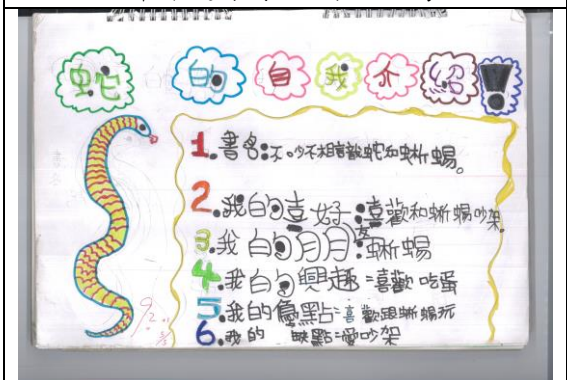 蛇的自我介紹!
1.書名:不吵不相識蛇和蜥蜴。
2.我的喜好:喜歡和蜥蜴吵架
3.我的朋友:蜥蜴
4.我的興趣:喜歡吃蛋
5.我的優點:喜歡跟蜥蜴玩
6.我的 缺點:愛吵架